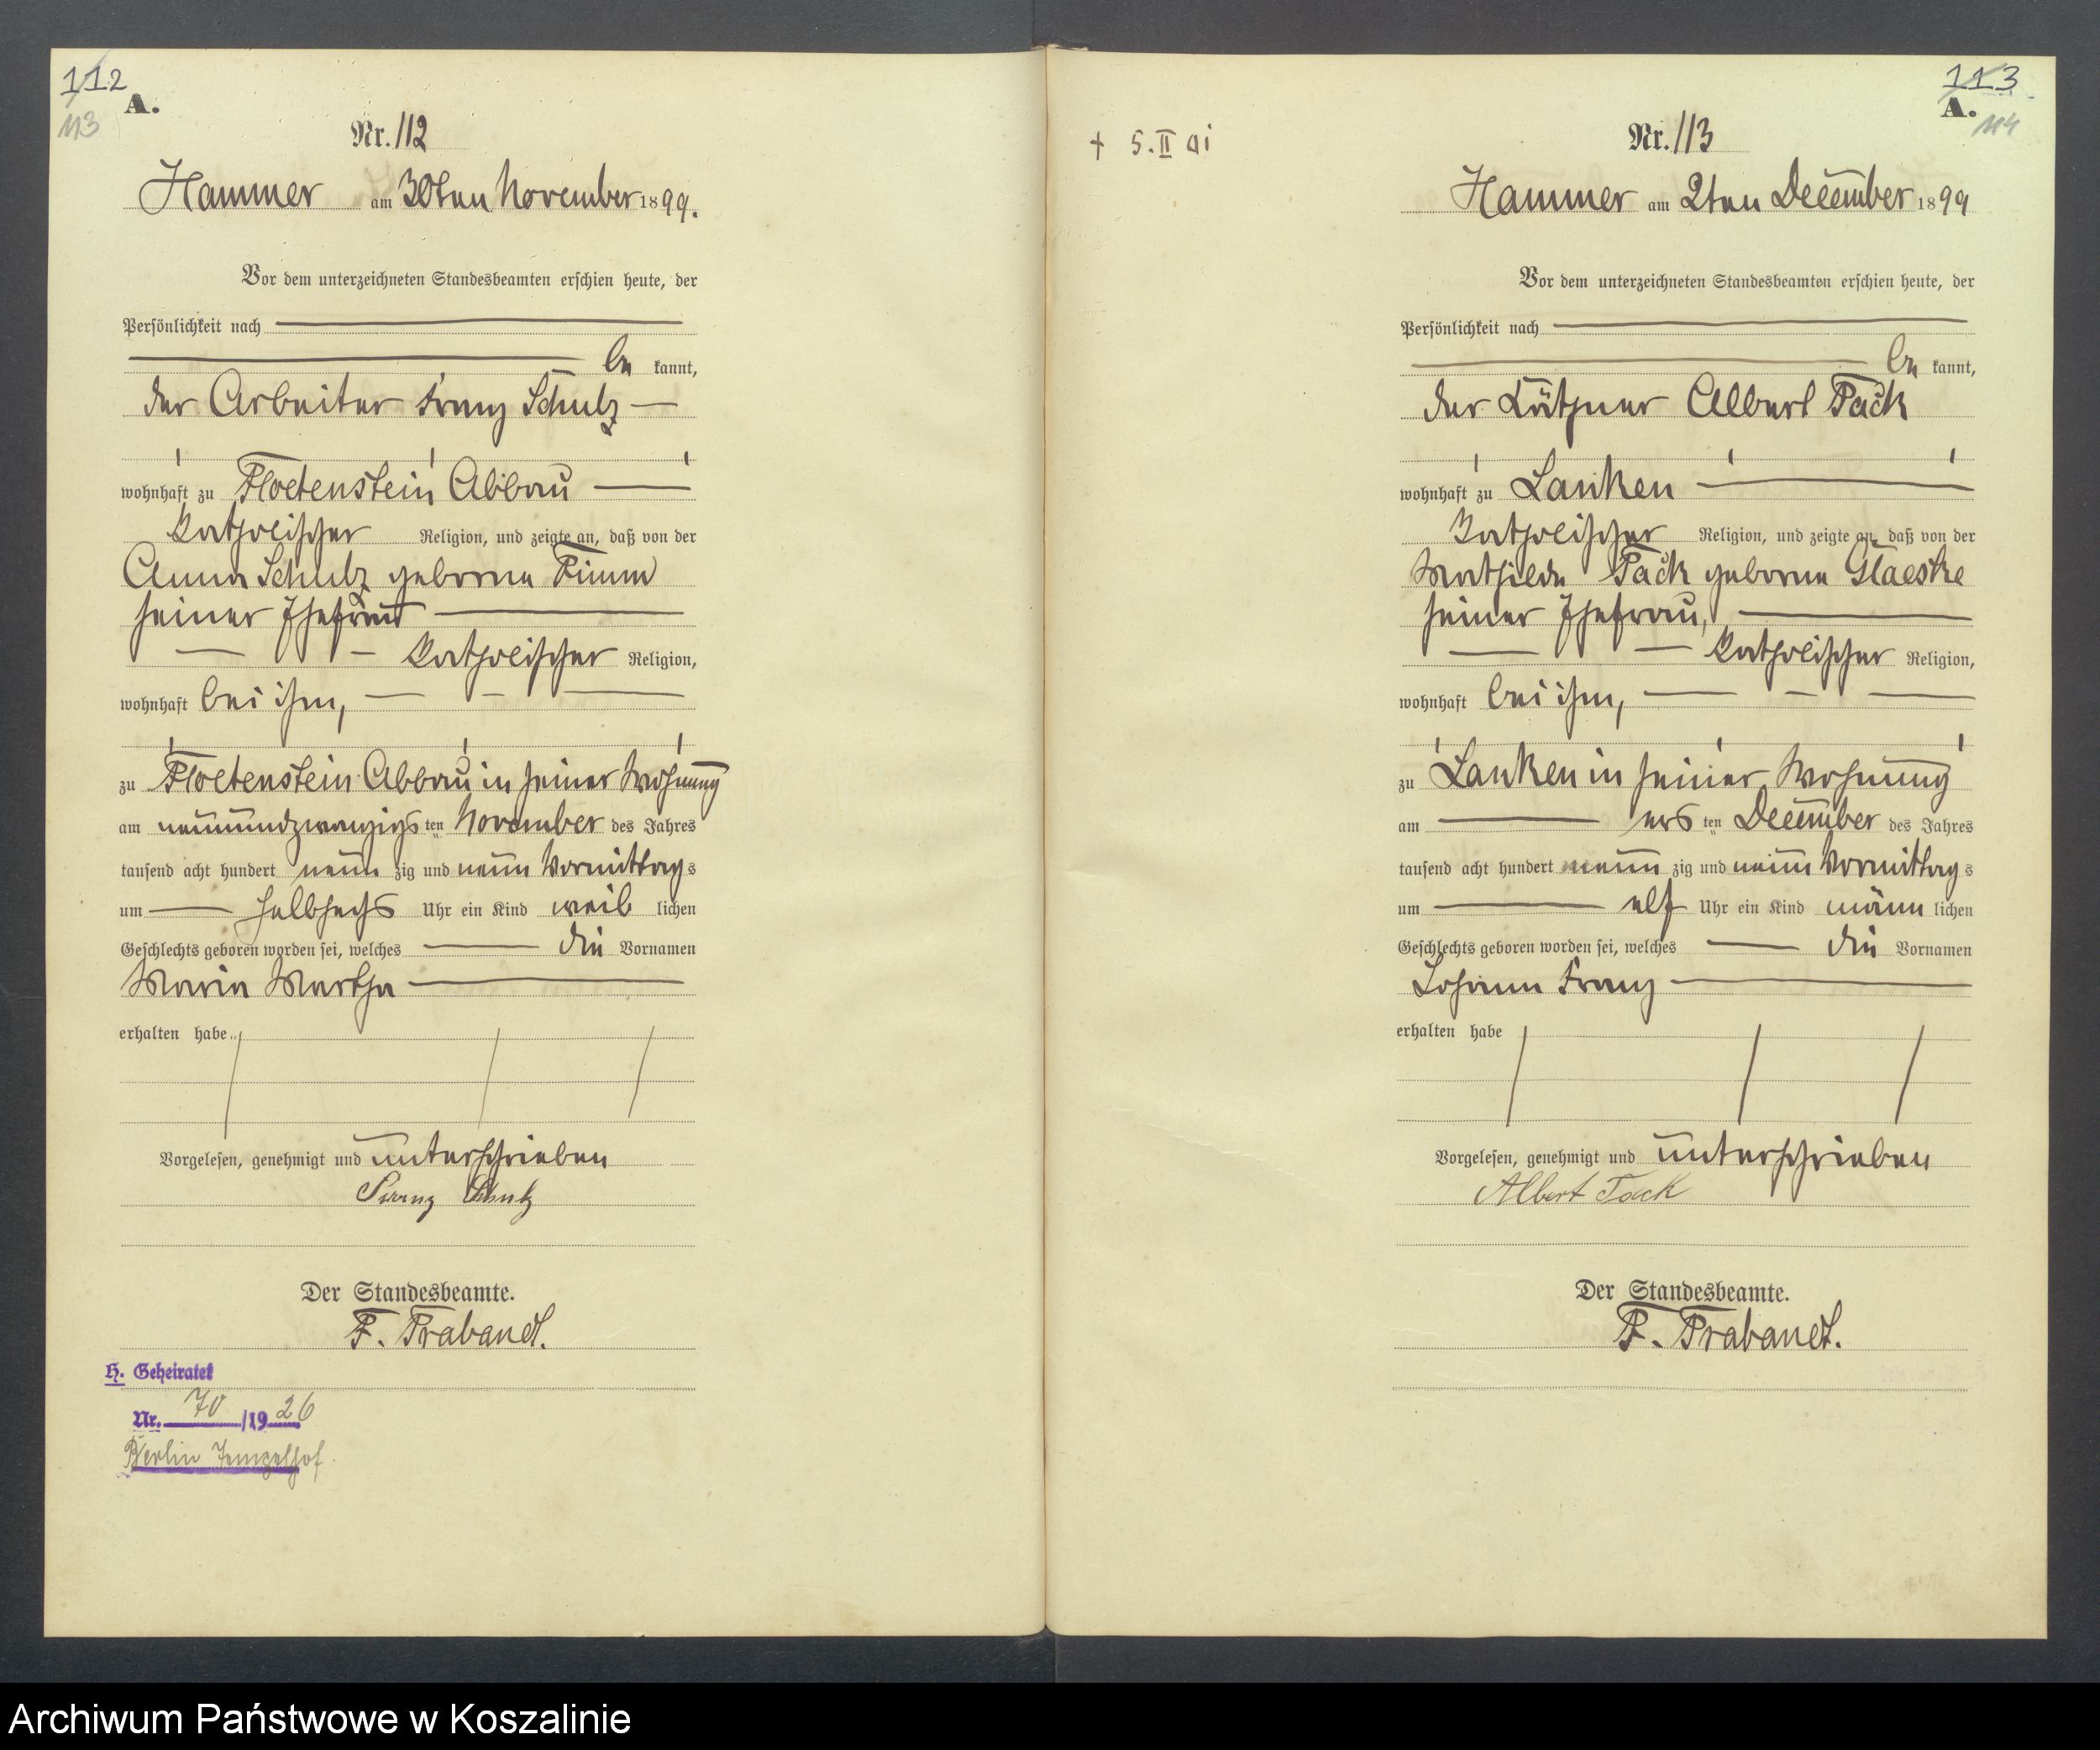 112
A.
113
Nr. 112
Hammer am 30ten November 1899.
Vor dem unterzeichneten Standesbeamten erschien heute, der
Persönlichkeit nach
be kannt,
der Arbeiter Franz Schulz
wohnhaft zu Floetenstein Abbau
katholischer Religion, und zeigte an, daß von der
Anna Schulz geborne Timm
seiner Ehefrau
katholischer Religion,
wohnhaft bei ihm,
zu Floetenstein Abbau in seiner Wohnung
am neunundzwanzigs ten November des Jahres
tausend acht hundert neun zig und neun Vormittag s
um halbsechs Uhr ein Kind weib lichen
Geschlechts geboren worden sei, welches die Vornamen
Maria Martha
erhalten habe
Vorgelesen, genehmigt und unterschrieben
Franz Schulz
Der Standesbeamte.
F. Trabandt.
H. Geheiratet
Nr. 70 /19 26
Berlin Tempelhof
113
A.
114
+ 5. II 01
Nr. 113
Hammer am 2ten December 1899
Vor dem unterzeichneten Standesbeamten erschien heute, der
Persönlichkeit nach
be kannt,
der Käthner Albert Tack
wohnhaft zu Lanken
katholischer Religion, und zeigte an, daß von der
Mathilde Tack geborne Glaeske
seiner Ehefrau,
katholischer Religion,
wohnhaft bei ihm,
zu Lanken in seiner Wohnung
am ers ten December des Jahres
tausend acht hundert neun zig und neun Vormittag s
um elf Uhr ein Kind männ lichen
Geschlechts geboren worden sei, welches die Vornamen
Johann Franz
erhalten habe
Vorgelesen, genehmigt und unterschrieben
Albert Tack
Der Standesbeamte.
F. Trabandt.
Archiwum Państwowe w Koszalinie